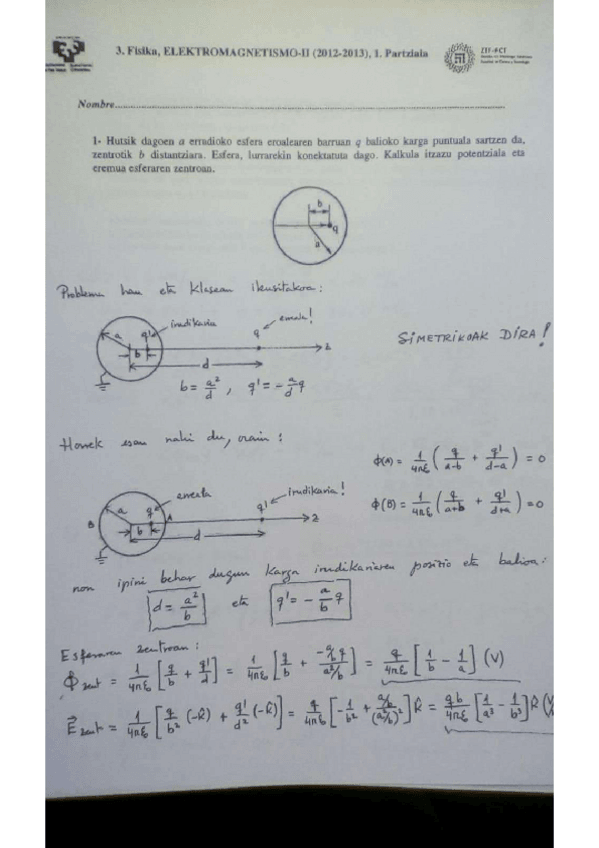 3. Fisika, ELEKTROMAGNETISMO-II (2012-2013), 1. Partziala
ZTF-FCT
Nombre
1- Hutsik dagoen a erradioko esfera eroalearen barruan q balioko karga puntuala sartzen da,
zentrotik b distantziara. Esfera, lurrarekin konektatuta dago. Kalkula itzazu potentziala eta
eremua esferaren zentroan.
b
q
a
Problema hau eta klasean ikusitakoa:
a q' irudikaria q erreala! z
b d
SIMETRIKOAK DIRA!
b = a²/d , q' = -a/d q
Honek esan nahi du, orain:
Φ(A) = 1/4πε₀ ( q/a-b + q'/d-a ) = 0
a q erreala q' irudikaria!
B A b d z
Φ(B) = 1/4πε₀ ( q/a+b + q'/d+a ) = 0
non ipini behar dugun karga irudikariaren posizio eta balioa:
d = a²/b eta q' = -a/b q
Esferaren zentroan:
Φzent = 1/4πε₀ [ q/b + q'/d ] = 1/4πε₀ [ q/b + -a/b q / a²/b ] = q/4πε₀ [ 1/b - 1/a ] (V)
E⃗zent = 1/4πε₀ [ q/b² (-k̂) + q'/d² (-k̂) ] = q/4πε₀ [ -1/b² + a/b / (a²/b)² ] k̂ = qb/4πε₀ [ 1/a³ - 1/b³ ] k̂ (V/